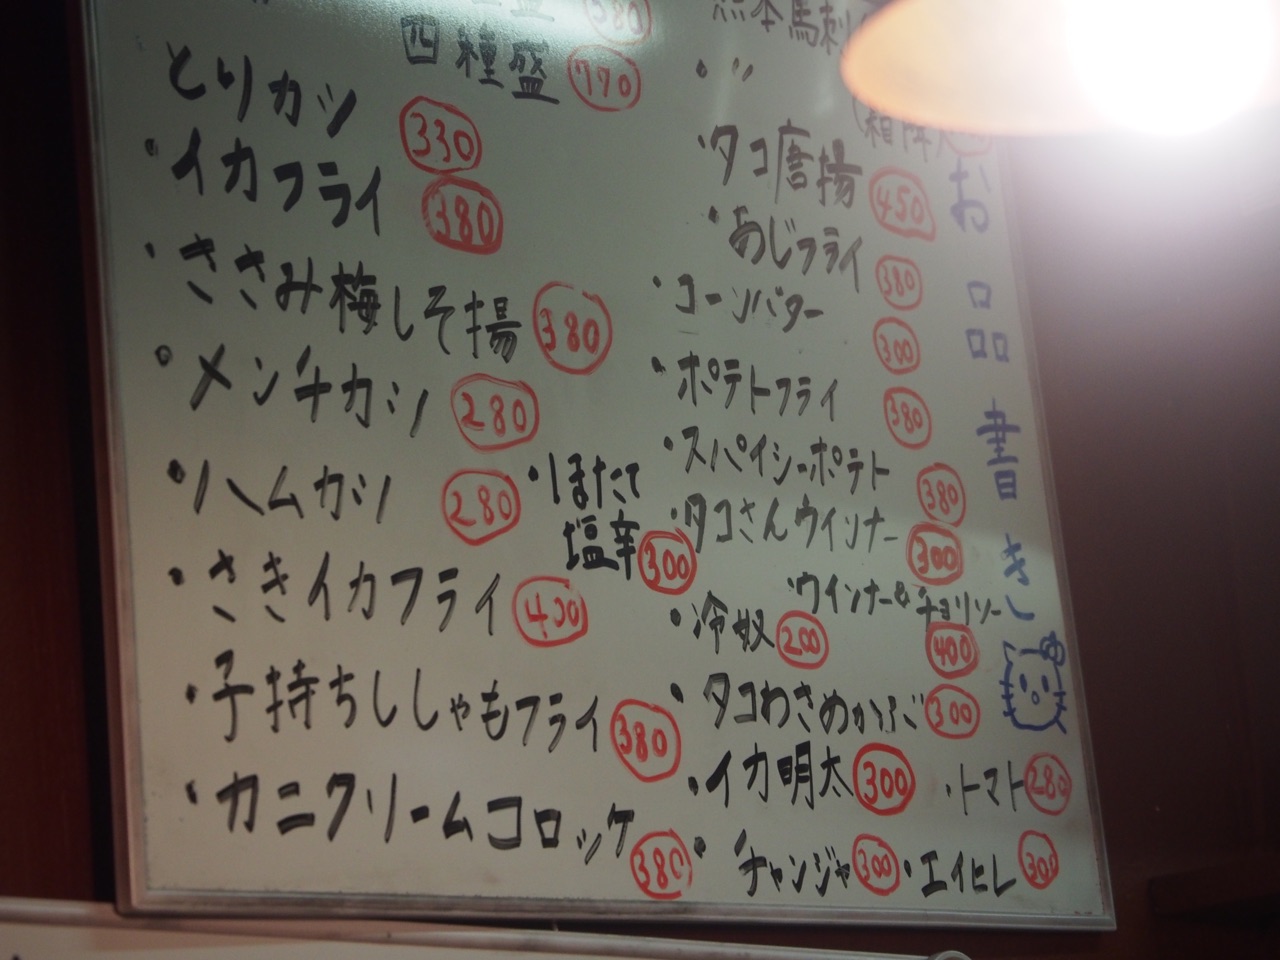 お品書き
580
四種盛 770
とりカツ 330
・イカフライ 380
・ささみ梅しそ揚 380
・メンチカツ 280
・ハムカツ 280
・さきイカフライ 400
・子持ちししゃもフライ 380
・カニクリームコロッケ 380
・ほたて
塩辛 300
熊本馬刺
・タコ唐揚 450
・あじフライ 380
・コーンバター 300
・ポテトフライ 380
・スパイシーポテト 380
・タコさんウインナー 300
・ウインナー&チョリソー 400
・冷奴 200
・タコわさめかぶ 300
・イカ明太 300
・トマト 280
・チャンジャ 300
・エイヒレ 300